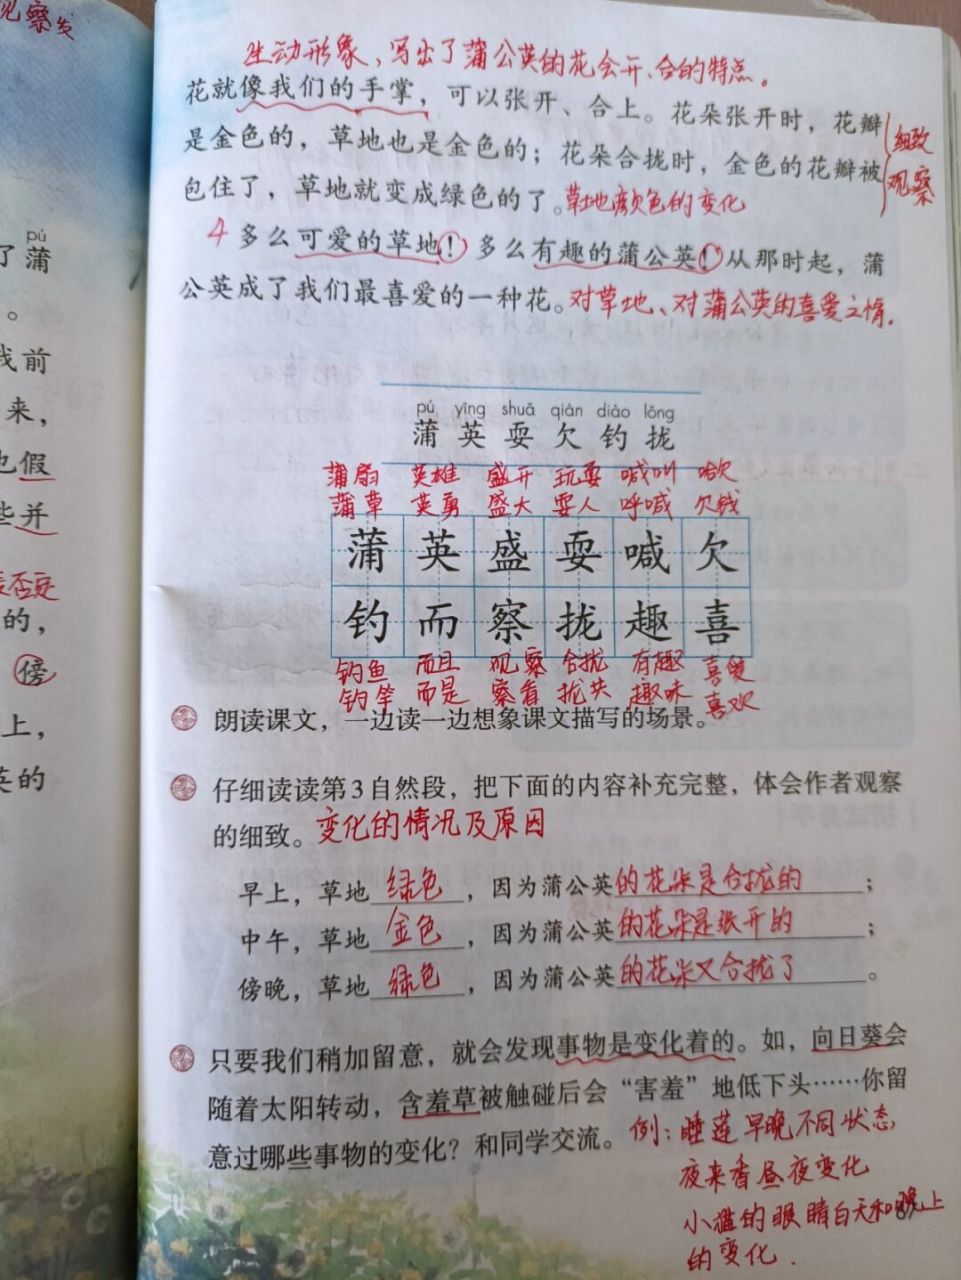 观察发
生动形象，写出了蒲公英的花会开、合的特点。
花就像我们的手掌，可以张开、合上。花朵张开时，花瓣
是金色的，草地也是金色的；花朵合拢时，金色的花瓣被
细致
观察
包住了，草地就变成绿色的了。草地颜色的变化
4 多么可爱的草地！多么有趣的蒲公英！从那时起，蒲
公英成了我们最喜爱的一种花。对草地、对蒲公英的喜爱之情.
pú
了蒲
。
我前
来，
也假
些并
的，
傍
上，
英的
pú yīng shuǎ qiàn diào lǒng
蒲 英 耍 欠 钓 拢
蒲扇 英雄 盛开 玩耍 喊叫
蒲草 英勇 盛大 耍人 呼喊 欠钱
蒲 英 盛 耍 喊 欠
钓 而 察 拢 趣 喜
钓鱼 而且 观察 合拢 有趣 喜爱
钓竿 而是 察看 拢共 趣味 喜欢
朗读课文，一边读一边想象课文描写的场景。
仔细读读第3自然段，把下面的内容补充完整，体会作者观察
的细致。变化的情况及原因
早上，草地绿色，因为蒲公英的花朵是合拢的；
中午，草地金色，因为蒲公英的花朵是张开的；
傍晚，草地绿色，因为蒲公英的花朵又合拢了。
只要我们稍加留意，就会发现事物是变化着的。如，向日葵会
随着太阳转动，含羞草被触碰后会“害羞”地低下头……你留
意过哪些事物的变化？和同学交流。例：睡莲早晚不同状态
夜来香昼夜变化
小猫的眼睛白天和晚上
的变化.